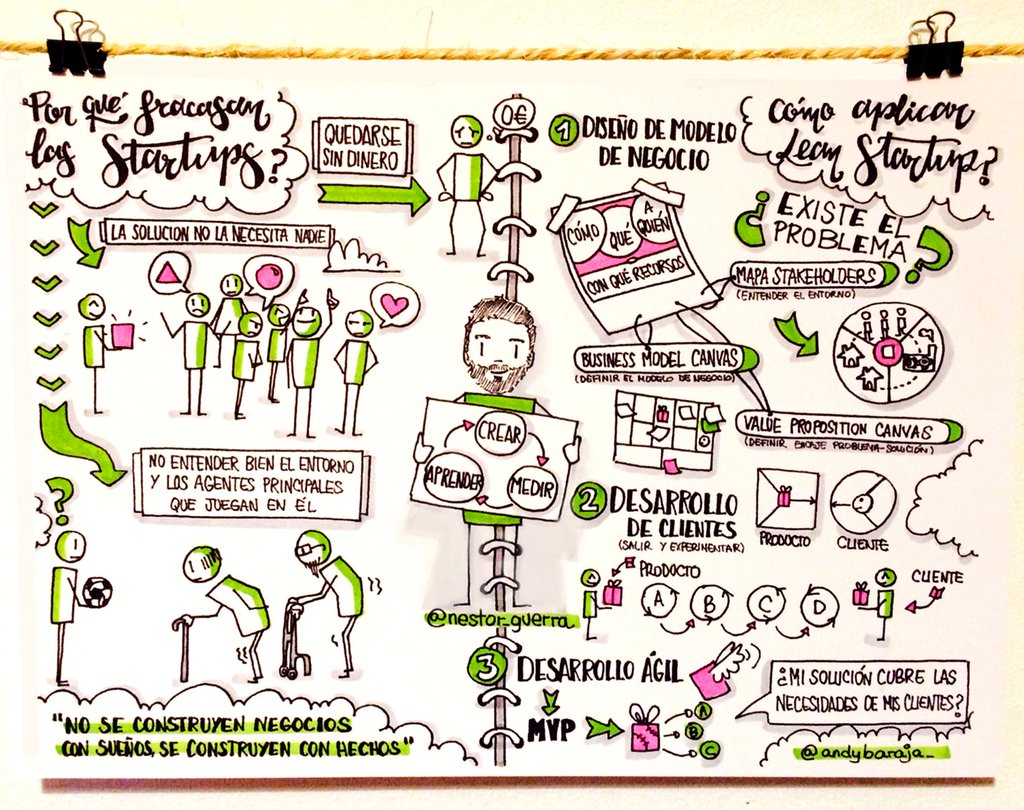 Por qué fracasan
las Startups?
QUEDARSE
SIN DINERO
0€
LA SOLUCION NO LA NECESITA NADIE
NO ENTENDER BIEN EL ENTORNO
Y LOS AGENTES PRINCIPALES
QUE JUEGAN EN ÉL
?
"NO SE CONSTRUYEN NEGOCIOS
CON SUEÑOS, SE CONSTRUYEN CON HECHOS"
CREAR
APRENDER
MEDIR
@nestor_guerra
Cómo aplicar
Lean Startup?
1 DISEÑO DE MODELO
DE NEGOCIO
CÓMO
QUÉ
A
QUIÉN
CON QUÉ RECURSOS
¿EXISTE EL
PROBLEMA?
MAPA STAKEHOLDERS
(ENTENDER EL ENTORNO)
BUSINESS MODEL CANVAS
(DEFINIR EL MODELO DE NEGOCIO)
VALUE PROPOSITION CANVAS
(DEFINIR ENCAJE PROBLEMA-SOLUCIÓN)
PRODUCTO
CLIENTE
2 DESARROLLO
DE CLIENTES
(SALIR Y EXPERIMENTAR)
PRODUCTO
A B C D
CLIENTE
3 DESARROLLO ÁGIL
MVP
A
B
C
¿MI SOLUCIÓN CUBRE LAS
NECESIDADES DE MIS CLIENTES?
@andybaraja_